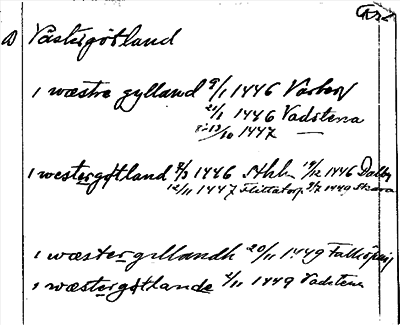 a) Västergötland
i wæstre gylland 9/1 1446 Varberg
21/1 1446 Vadstena
8-13/10 1447 —
i westergøtland 7/3 1446 Sthlm 19/12 1446 Dalby
12/11 1447 9/7 1449 Skara
i wæstergillandh 20/11 1449 Falköping
i wæstergøtlande 4/11 1449 Vadstena